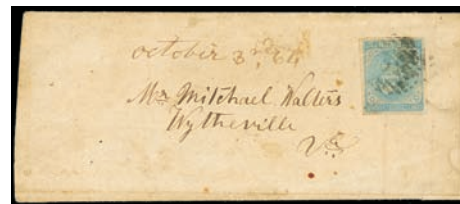 October 3rd, 64
Mr Mitchael Walters
Wytheville
Va